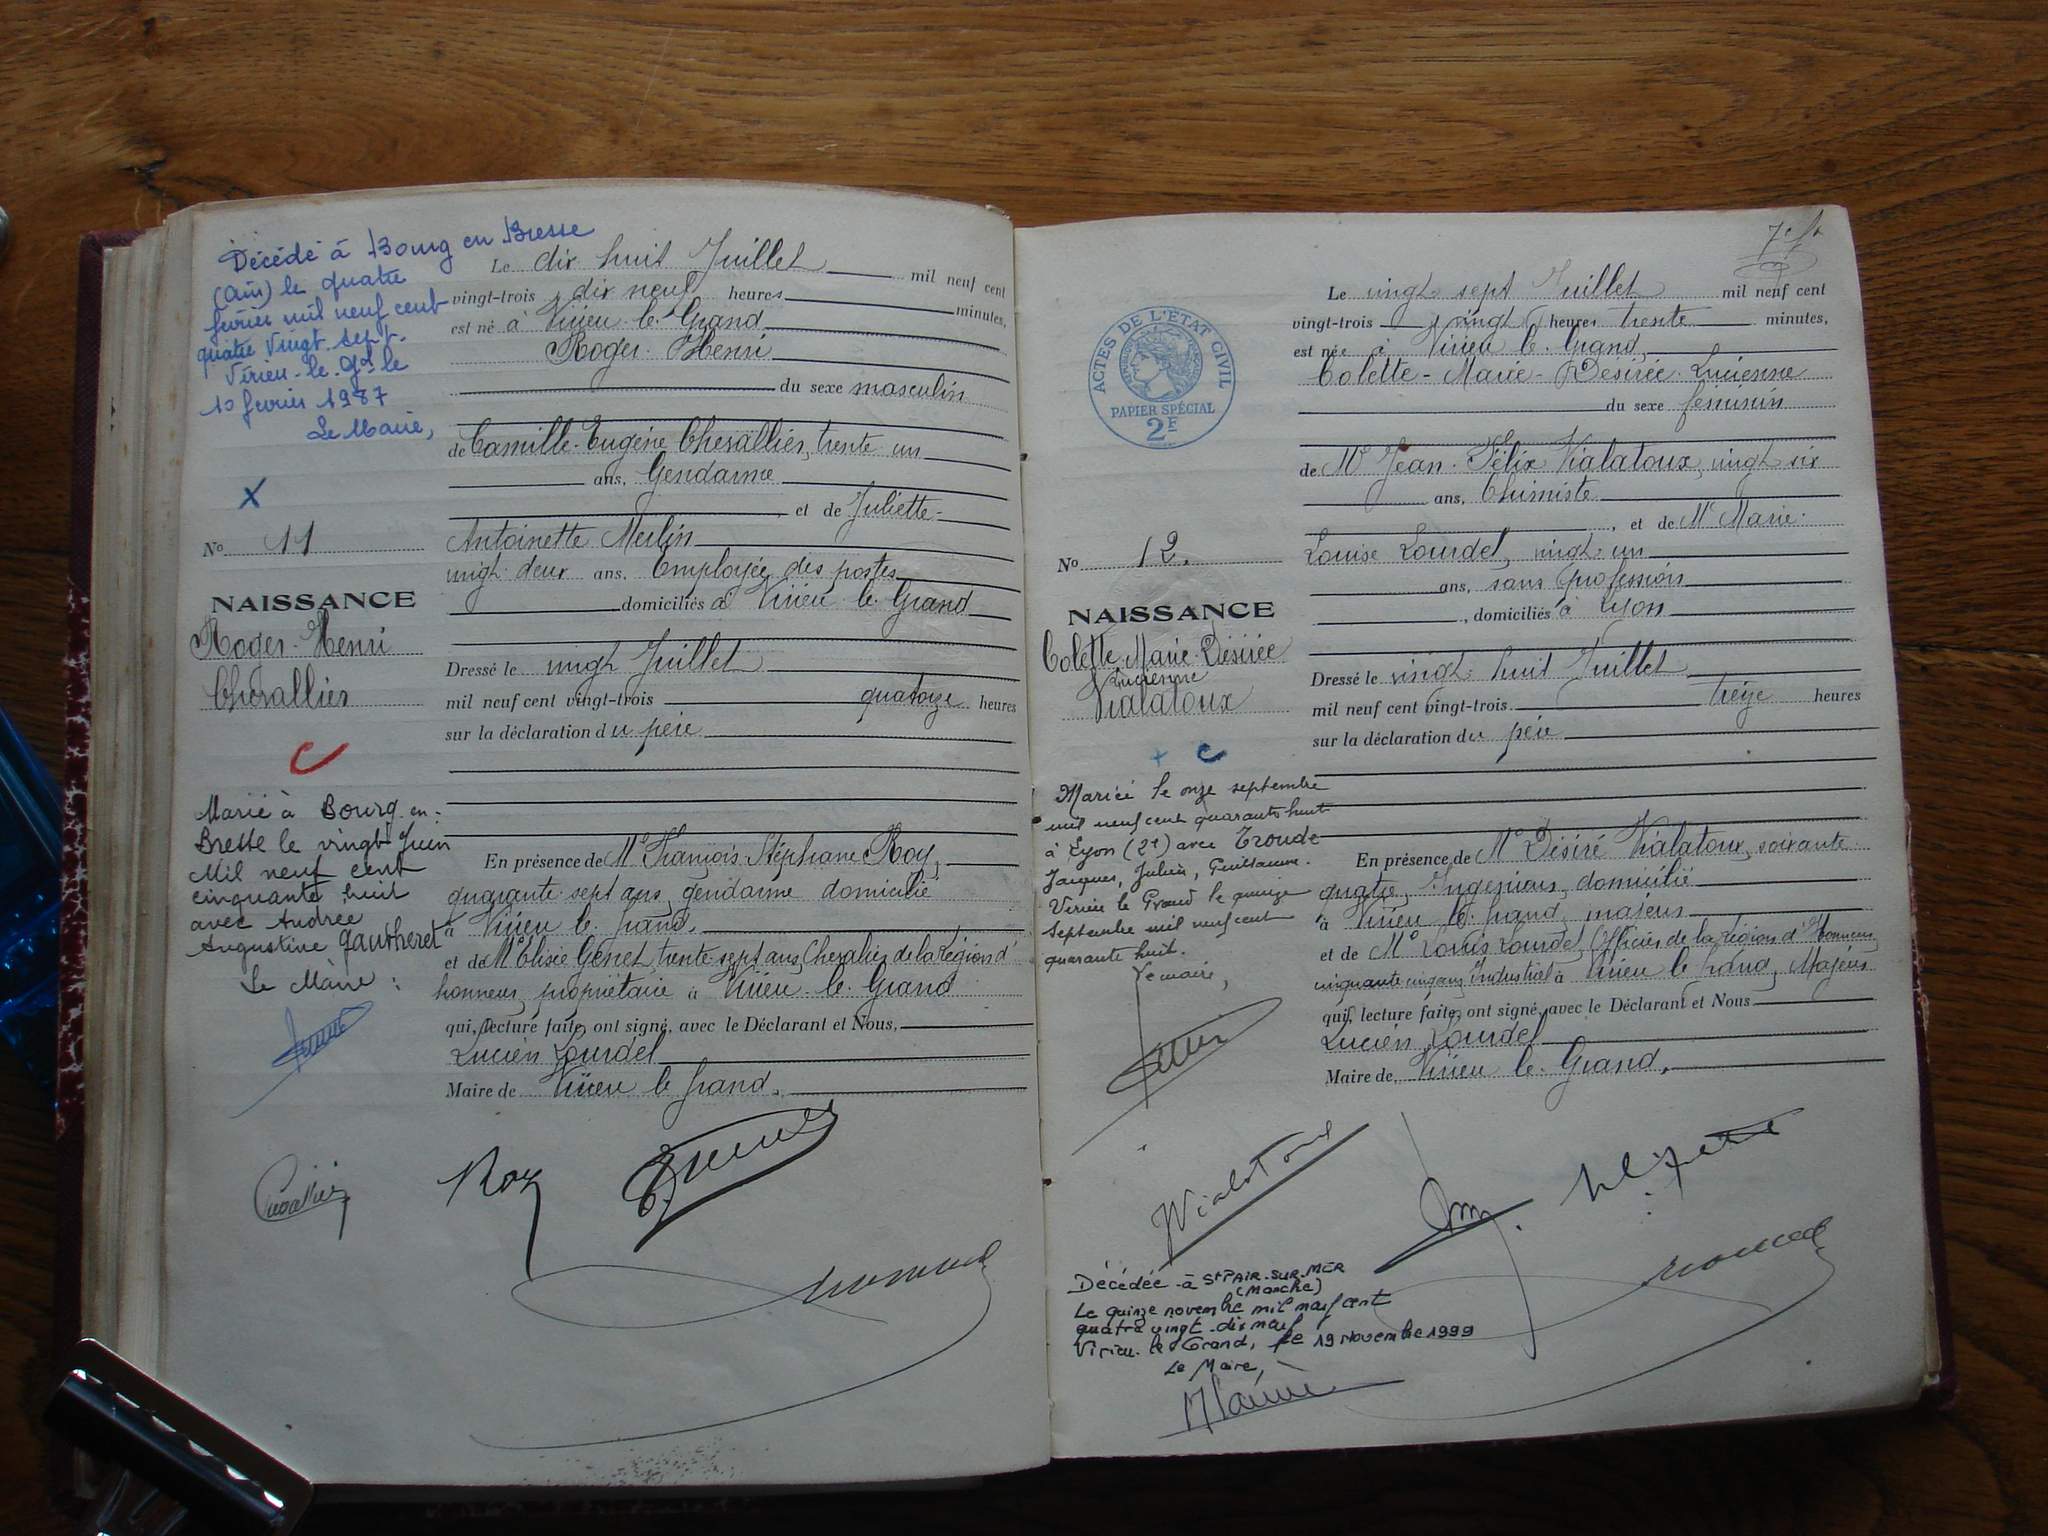 Décédé à Bourg en Bresse
(Ain) le quatre
février mil neuf cent
quatre vingt sept.
Virieu-le-Gd le
10 février 1987
Le Maire,
X
No 11
NAISSANCE
Roger-Henri
Chevallier
Marié à Bourg-en-
Bresse le vingt Juin
Mil neuf cent
cinquante huit
avec Andrée
Augustine Gautheret
Le Maire :
Le dix huit Juillet mil neuf cent
vingt-trois dix neuf heures minutes,
est né à Virieu-le-Grand
Roger-Henri
du sexe masculin
de Camille-Eugène Chevallier, trente un
ans, Gendarme
et de Juliette-
Antoinette Merlin
vingt-deux ans, Employée des postes
domiciliés à Virieu-le-Grand
Dressé le vingt Juillet
mil neuf cent vingt-trois quatorze heures
sur la déclaration du père
En présence de Mr François Stéphane Roy,
quarante-sept ans, gendarme domicilié
à Virieu-le-Grand,
et de Mr Elisée Genet, trente sept ans, Chevalier de la Légion d'
honneur, propriétaire à Virieu-le-Grand
qui, lecture faite, ont signé, avec le Déclarant et Nous,
Lucien Lourdel
Maire de Virieu le Grand.
Chevallier
Roy
7
ACTES DE L'ÉTAT CIVIL
PAPIER SPÉCIAL
2F
No 12.
NAISSANCE
Colette-Marie-Désirée
Lucienne
Vialatoux
+ C
Mariée le onze septembre
mil neuf cent quarante huit
à Lyon (2e) avec Troude
Jacques, Julien, Guillaume.
Virieu le Grand le quinze
Septembre mil neuf cent
quarante huit.
Le maire,
Le vingt sept Juillet mil neuf cent
vingt-trois vingt heures trente minutes,
est née à Virieu-le-Grand,
Colette-Marie-Désirée-Lucienne
du sexe féminin
de Mr Jean-Félix Vialatoux, vingt six
ans, Chimiste
, et de Me Marie-
Louise Lourdel, vingt-un
ans, sans profession
, domiciliés à Lyon
Dressé le vingt-huit Juillet
mil neuf cent vingt-trois treize heures
sur la déclaration du père
En présence de Mr Désiré Vialatoux, soixante-
quatre, Ingénieur, domicilié
à Virieu-le-Grand, majeur
et de Mr Louis Lourdel, Officier de la Légion d'Honneur
cinquante cinq ans, Industriel à Virieu le Grand, Majeur
qui, lecture faite, ont signé, avec le Déclarant et Nous
Lucien Lourdel
Maire de Virieu-le-Grand,
Vialatoux
Décédée à St PAIR-SUR-MER
(Manche)
Le quinze novembre mil neuf cent
quatre vingt-dix neuf
Virieu-le-Grand, le 19 Novembre 1999
Le Maire,